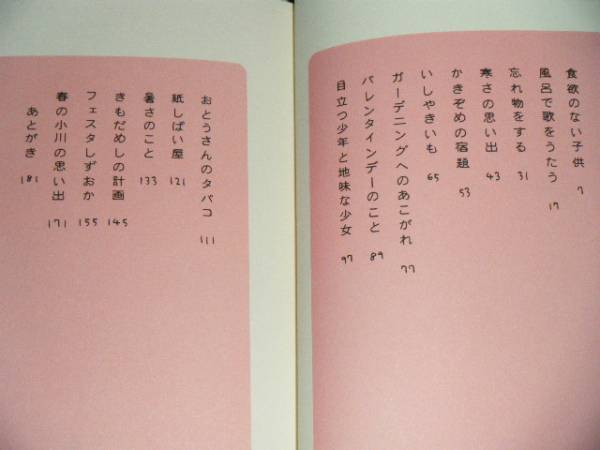 食欲のない子供 7
風呂で歌をうたう 17
忘れ物をする 31
寒さの思い出 43
かきぞめの宿題 53
いしやきいも 65
ガーデニングへのあこがれ 77
バレンタインデーのこと 89
目立つ少年と地味な少女 97
おとうさんのタバコ 111
紙しばい屋 121
暑さのこと 133
きもだめしの計画 145
フェスタしずおか 155
春の小川の思い出 171
あとがき 181